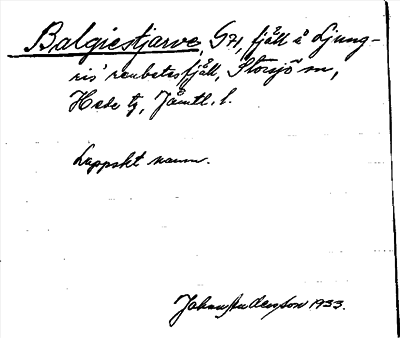 Balgiestjarve, G71, fjäll å Ljung-
ris' renbetesfjäll, Storsjö sn,
Hede tg, Jämtl. l.
Lappskt namn.
Johan Andersson 1933.